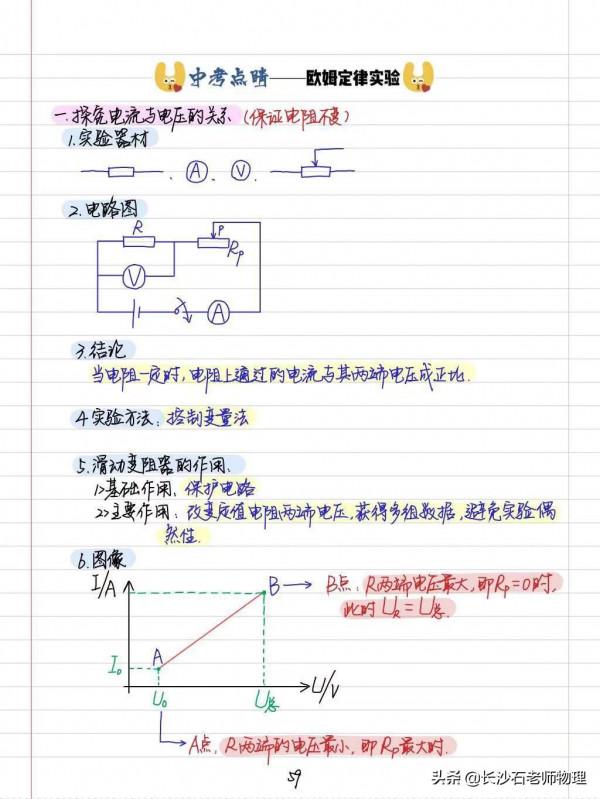 中考点睛——欧姆定律实验
一.探究电流与电压的关系(保证电阻不变)
1.实验器材
A V
2.电路图
R P
Rp
V
A
3.结论
当电阻一定时,电阻上通过的电流与其两端电压成正比.
4.实验方法:控制变量法
5.滑动变阻器的作用.
1>基础作用:保护电路
2>主要作用:改变定值电阻两端电压,获得多组数据,避免实验偶
然性.
6.图像
I/A
B B点:R两端电压最大,即Rp=0时,
此时UR=U总.
A
I₀
U₀ U总 U/V
A点:R两端的电压最小,即Rp最大时.
59
头条 @长沙石老师物理